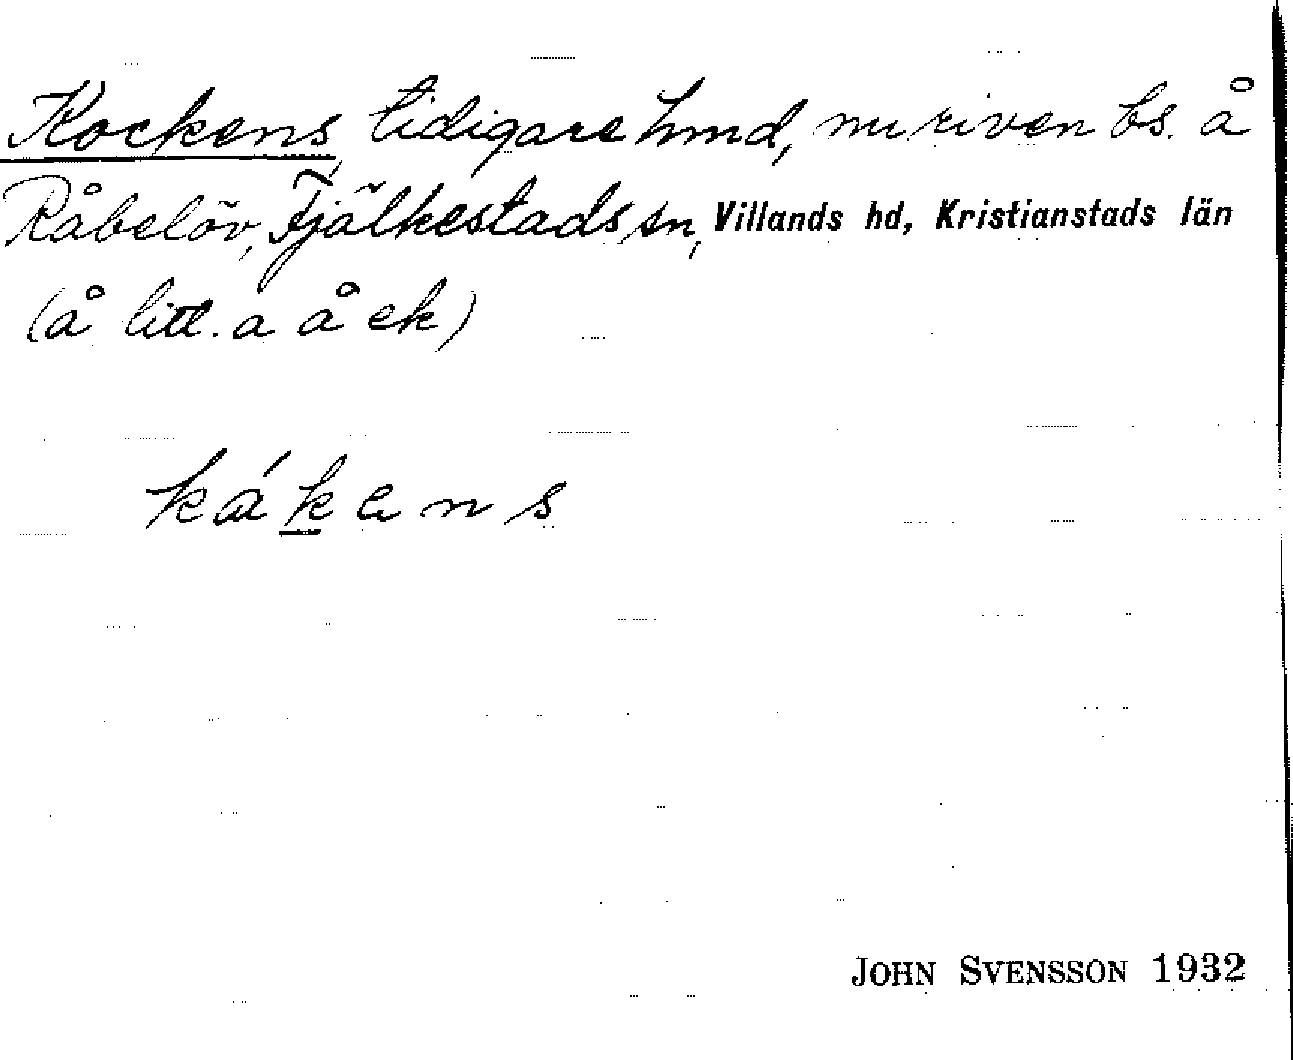 Kockens, tidigare hmd, nu riven bs. å
Råbelöv, Fjälkestads sn, Villands hd, Kristianstads län
(å litt. a å ek)
kákens
JOHN SVENSSON 1932